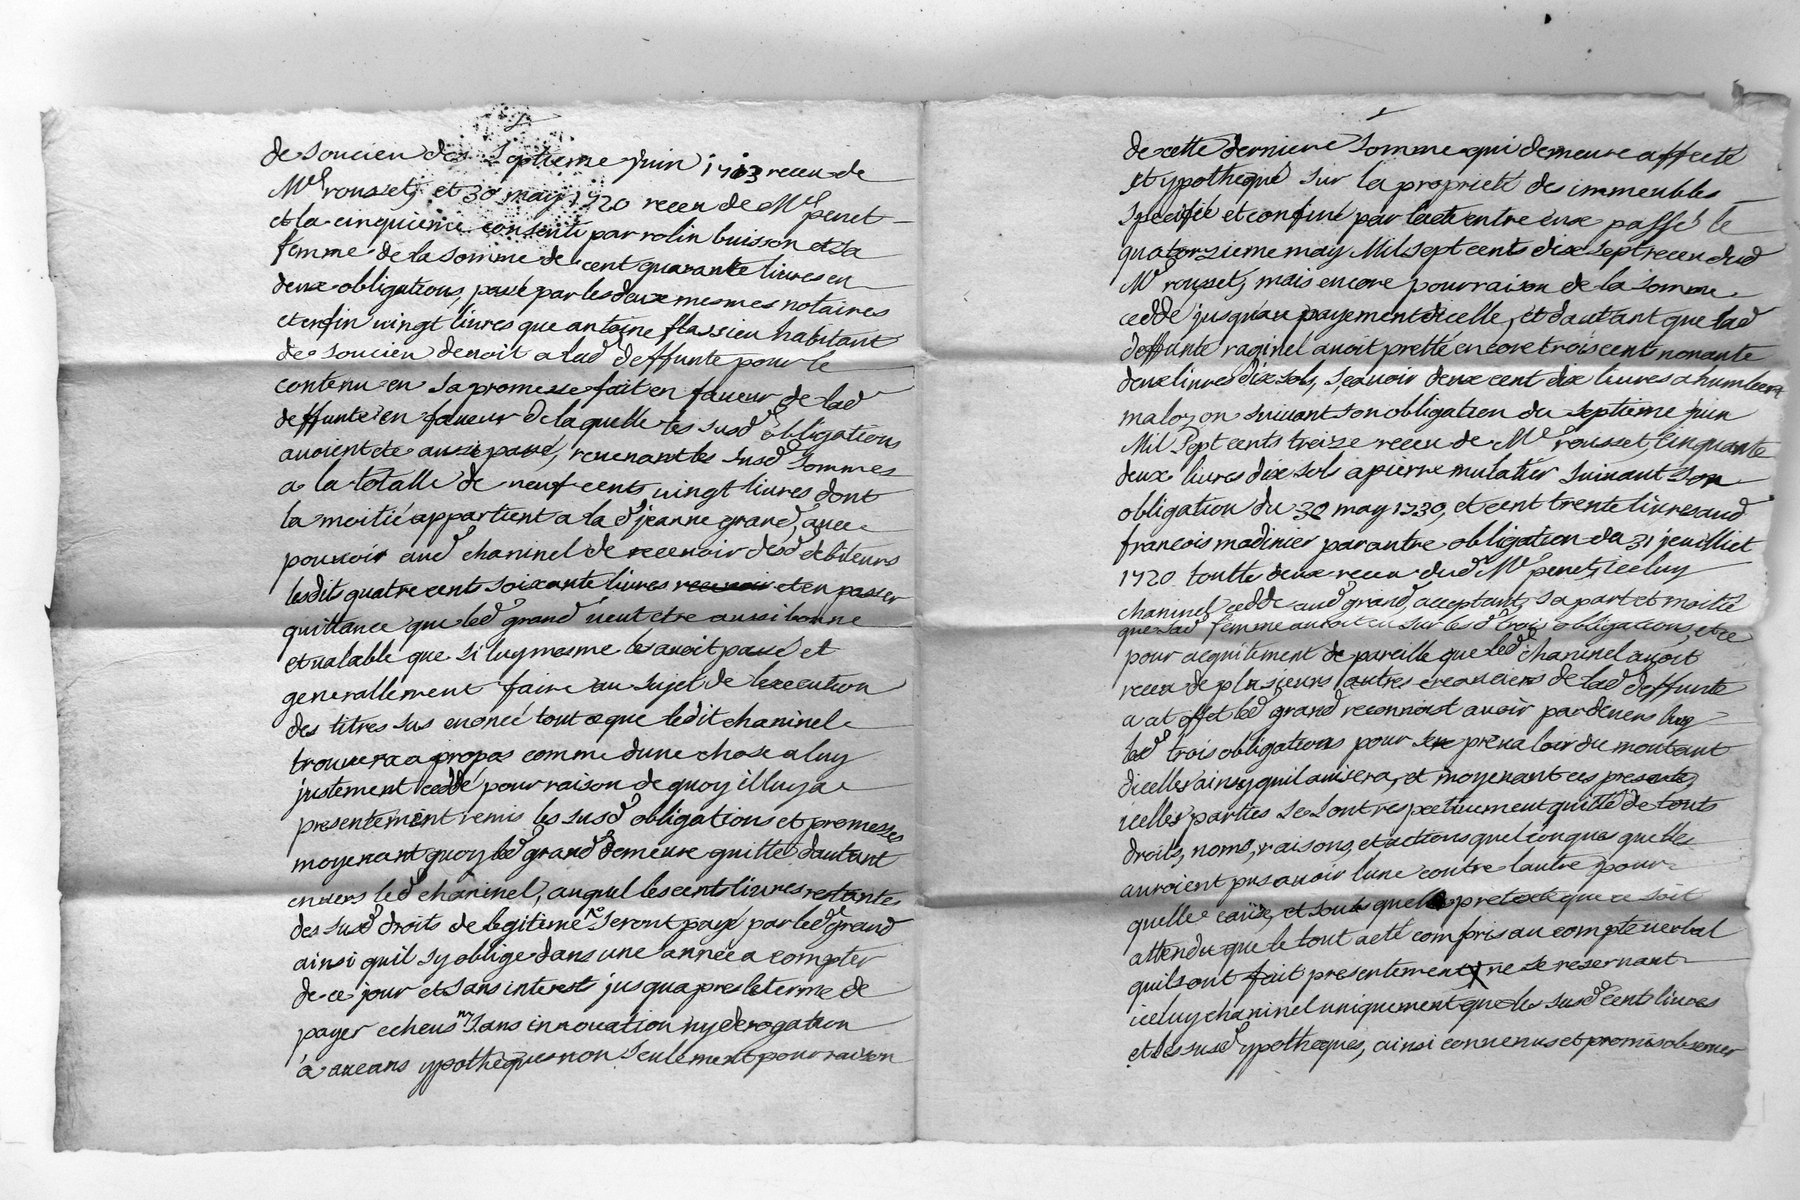 de soucieu des septieme juin 1713 receu de
Me rousset, et 30 may 1720 receu de Me penet
et la cinquieme consenti par rolin buisson et sa
femme de la somme de cent quarante livres en
deux obligations, passé par les deux mesmes notaires
et enfin vingt livres que antoine flassieu habitant
de soucieu devoit a lad deffunte pour le
contenu en sa promesse fait en faveur de lad
deffunte en faveur de laquelle les susd obligations
avoient ete aussi passé, revenant les susd sommes
a la totalle de neuf cents vingt livres dont
la moitié appartient a la d jeanne grand, avec
pouvoir aud chaninel de recevoir desd debiteurs
lesdits quatre cent soixante livres et en passer
quittance que led grand veut etre aussi bonne
et valable que si luy mesme les avoit passé et
generallement faire au sujet de lexecution
des titres sus enoncé tout ce que ledit chaninel
trouvera a propos comme dune chose a luy
justement ceddé pour raison de quoy il luy a
presentement remis les susd obligations et promesses
moyenant quoy led grand demeure quitte dautant
envers led chaninel, auquel les cents livres restantes
des susd droits de legitime seront payé par led grand
ainsi quil sy oblige dans une année a compter
de ce jour et sans interest jusquapres le terme de
payer echeus sans innovation ny derogation
à aucuns ypotheques non seulement pour raison
de cette derniere somme qui demeure affecté
et ypothequé sur la proprieté des immeubles
specifié et confiné par lacte entre eux passé le
quatorzieme may Mil sept cents dix sept receu dud
Me rousset, mais encore pour raison de la somme
ceddé jusquau payement dicelle, et dautant que lad
deffunte raginel avoit pretté encore trois cent nonante
deux livres dix sols, scavoir deux cent dix livres a humbert
malozon suivant son obligation du septieme juin
Mil sept cents treize receu de Me rousset, cinquante
deux livres dix sols a pierre mulatier suivant son
obligation du 30 may 1730, et cent trente livres aud
francois madinier par autre obligation du 31 jeuilliet
1720 toutte deux receu dud Me penet, iceluy
chaninel cedde aud grand acceptant, sa part et moitié
que lad femme auroit eu sur les d trois obligations, et ce
pour acquitement de pareille que led chaninel avoit
receu de plusieurs autres creanciers de lad deffunte
a cet effet led grand reconnoist avoir par devers luy
led trois obligations pour sen prevaloir du montant
dicelles ainsy quil avisera, et moyenant ces presentes
icelles parties se sont respectivement quitté de touts
droits, noms, raisons, et actions quelconques quelles
auroient pus avoir lune contre lautre pour
quelle cause, et sous quel pretexte que ce soit
attendu que le tout a eté compris au compte verbal
quils ont fait presentement ne se reservant
iceluy chaninel uniquement que les susd cent livres
et les susd ypotheques, ainsi convenus et promis observer